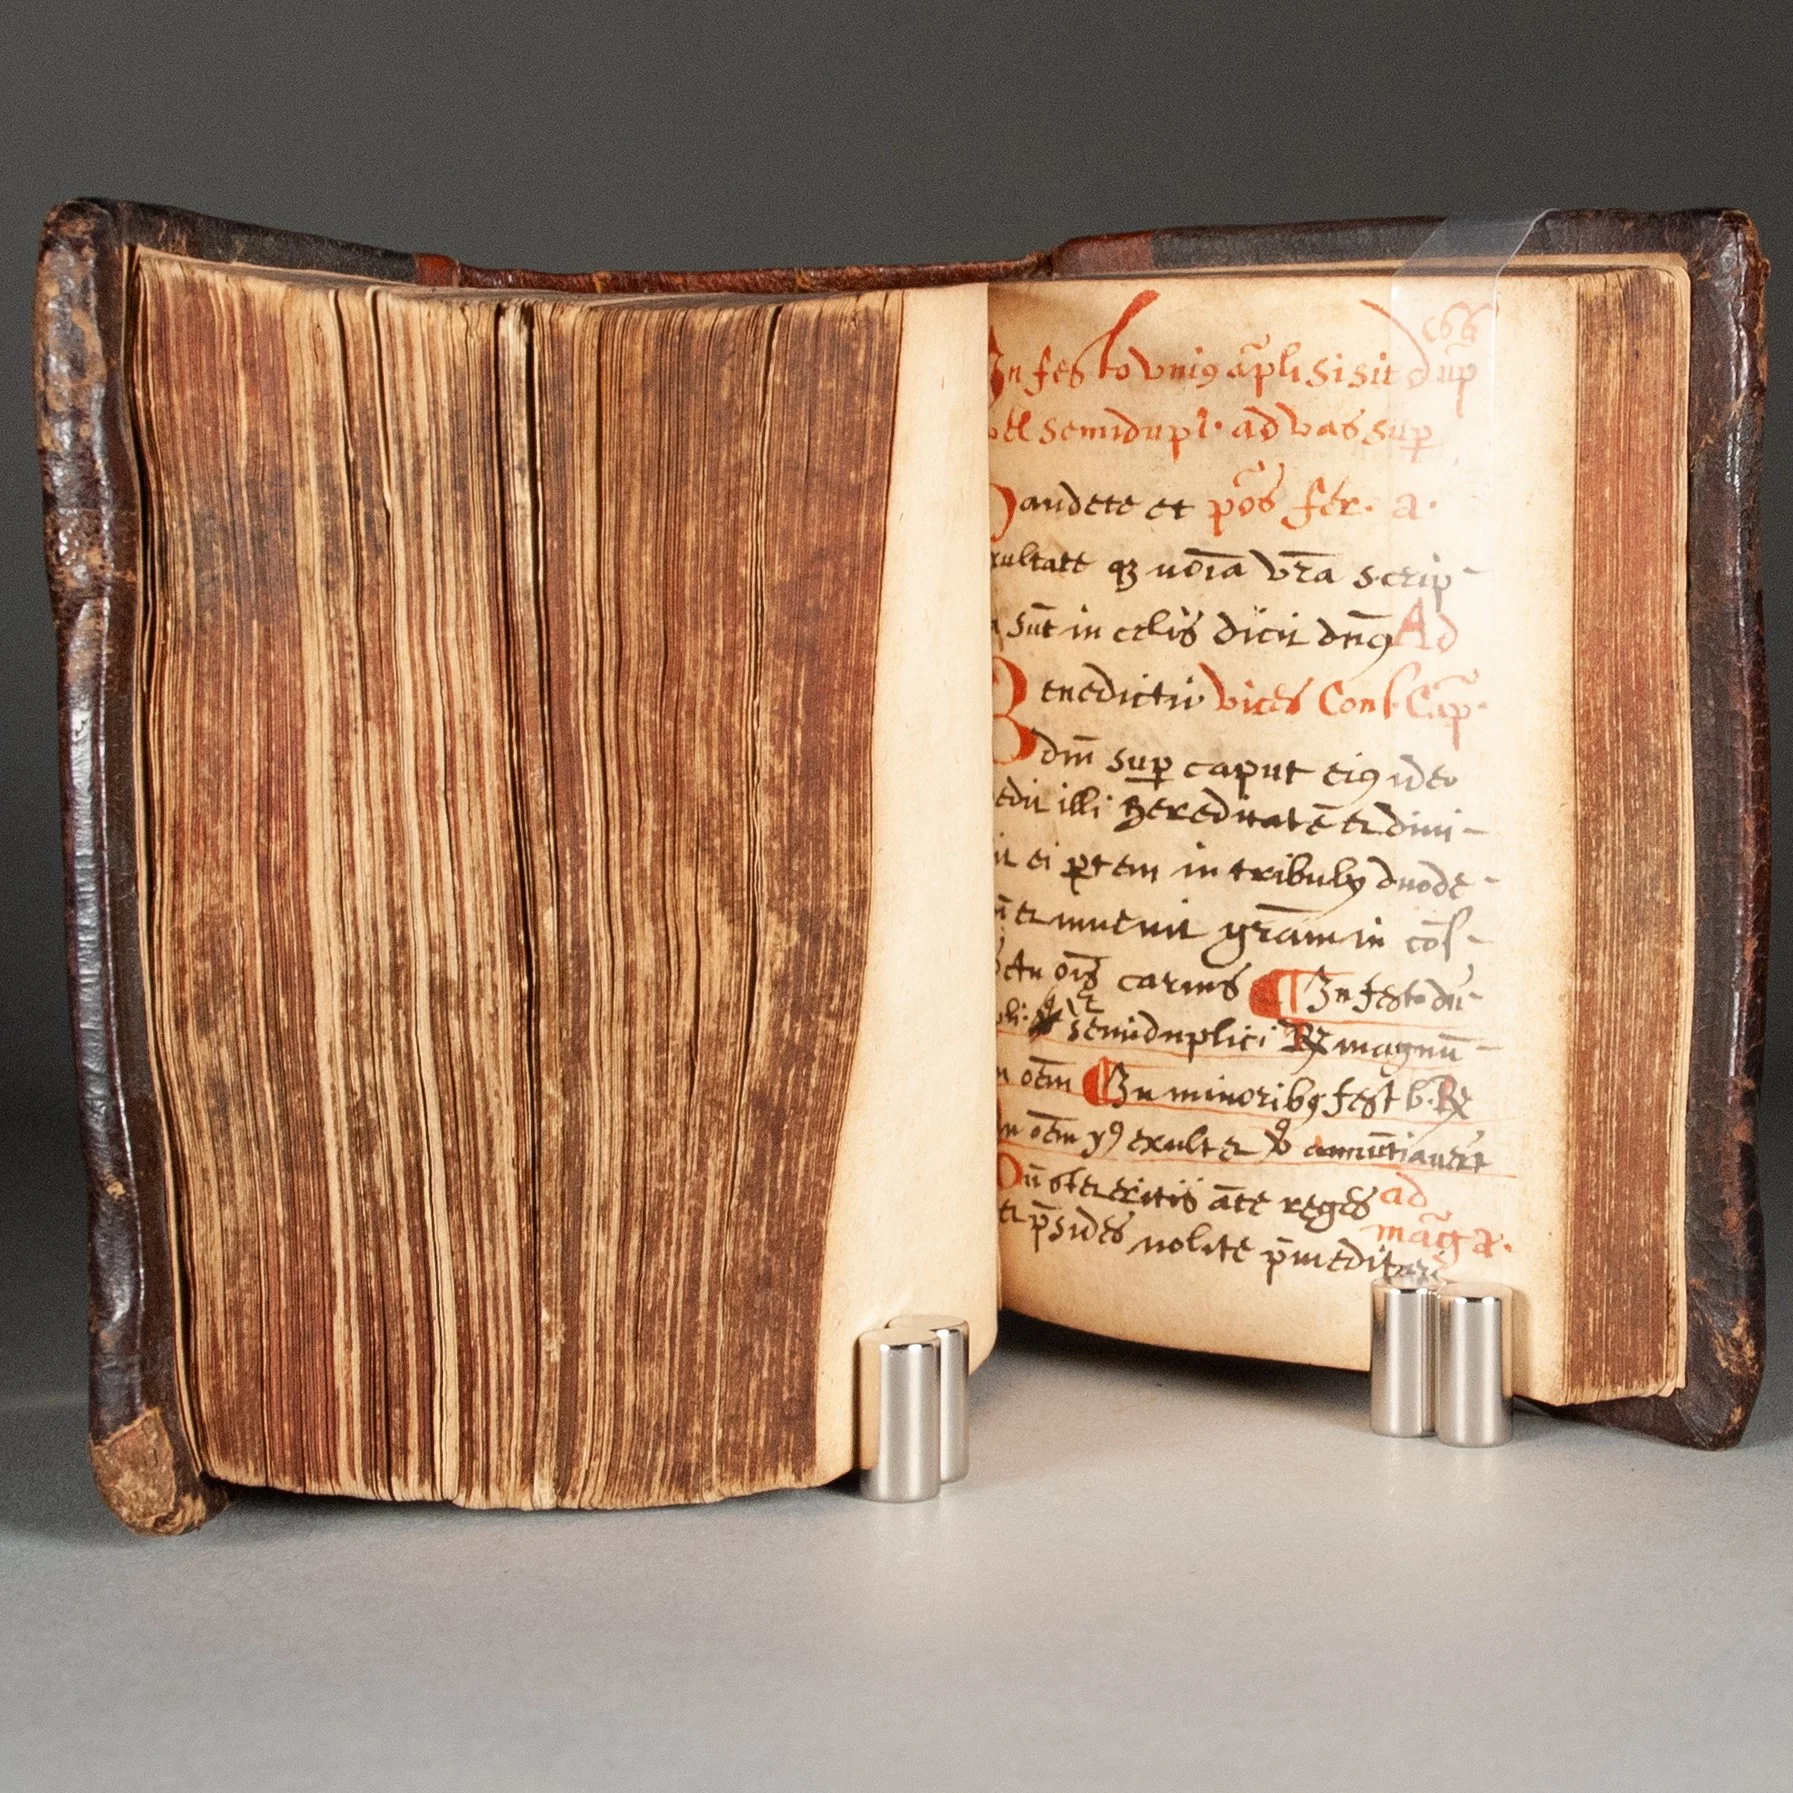 In festo uniꝯ ap̄li si sit dup
vel semidupl. ad vas sup̱
Gaudete et pōs fer. a.
xultate qȝ noīa vr̄a scrip-
a sūt in celis dicit dn̄ꝯ Ad
Benedictū vices Conf. Cap̄.
dn̄i sup̱ caput eiꝯ ideo
edit illi hereditatē et divi-
it ei p̱tem in tribubꝯ duode-
et invenit grām in cōs-
ctu oīs carnis ¶ In festo du-
pli. et semiduplici ℞ magnū-
n oēm ¶ In minoribꝯ fest b. ℞
n oēm yꝯ exult et annūtiaverūt
Dū steteritis āte reges ad
et p̄sides nolite p̄meditari mag. a.